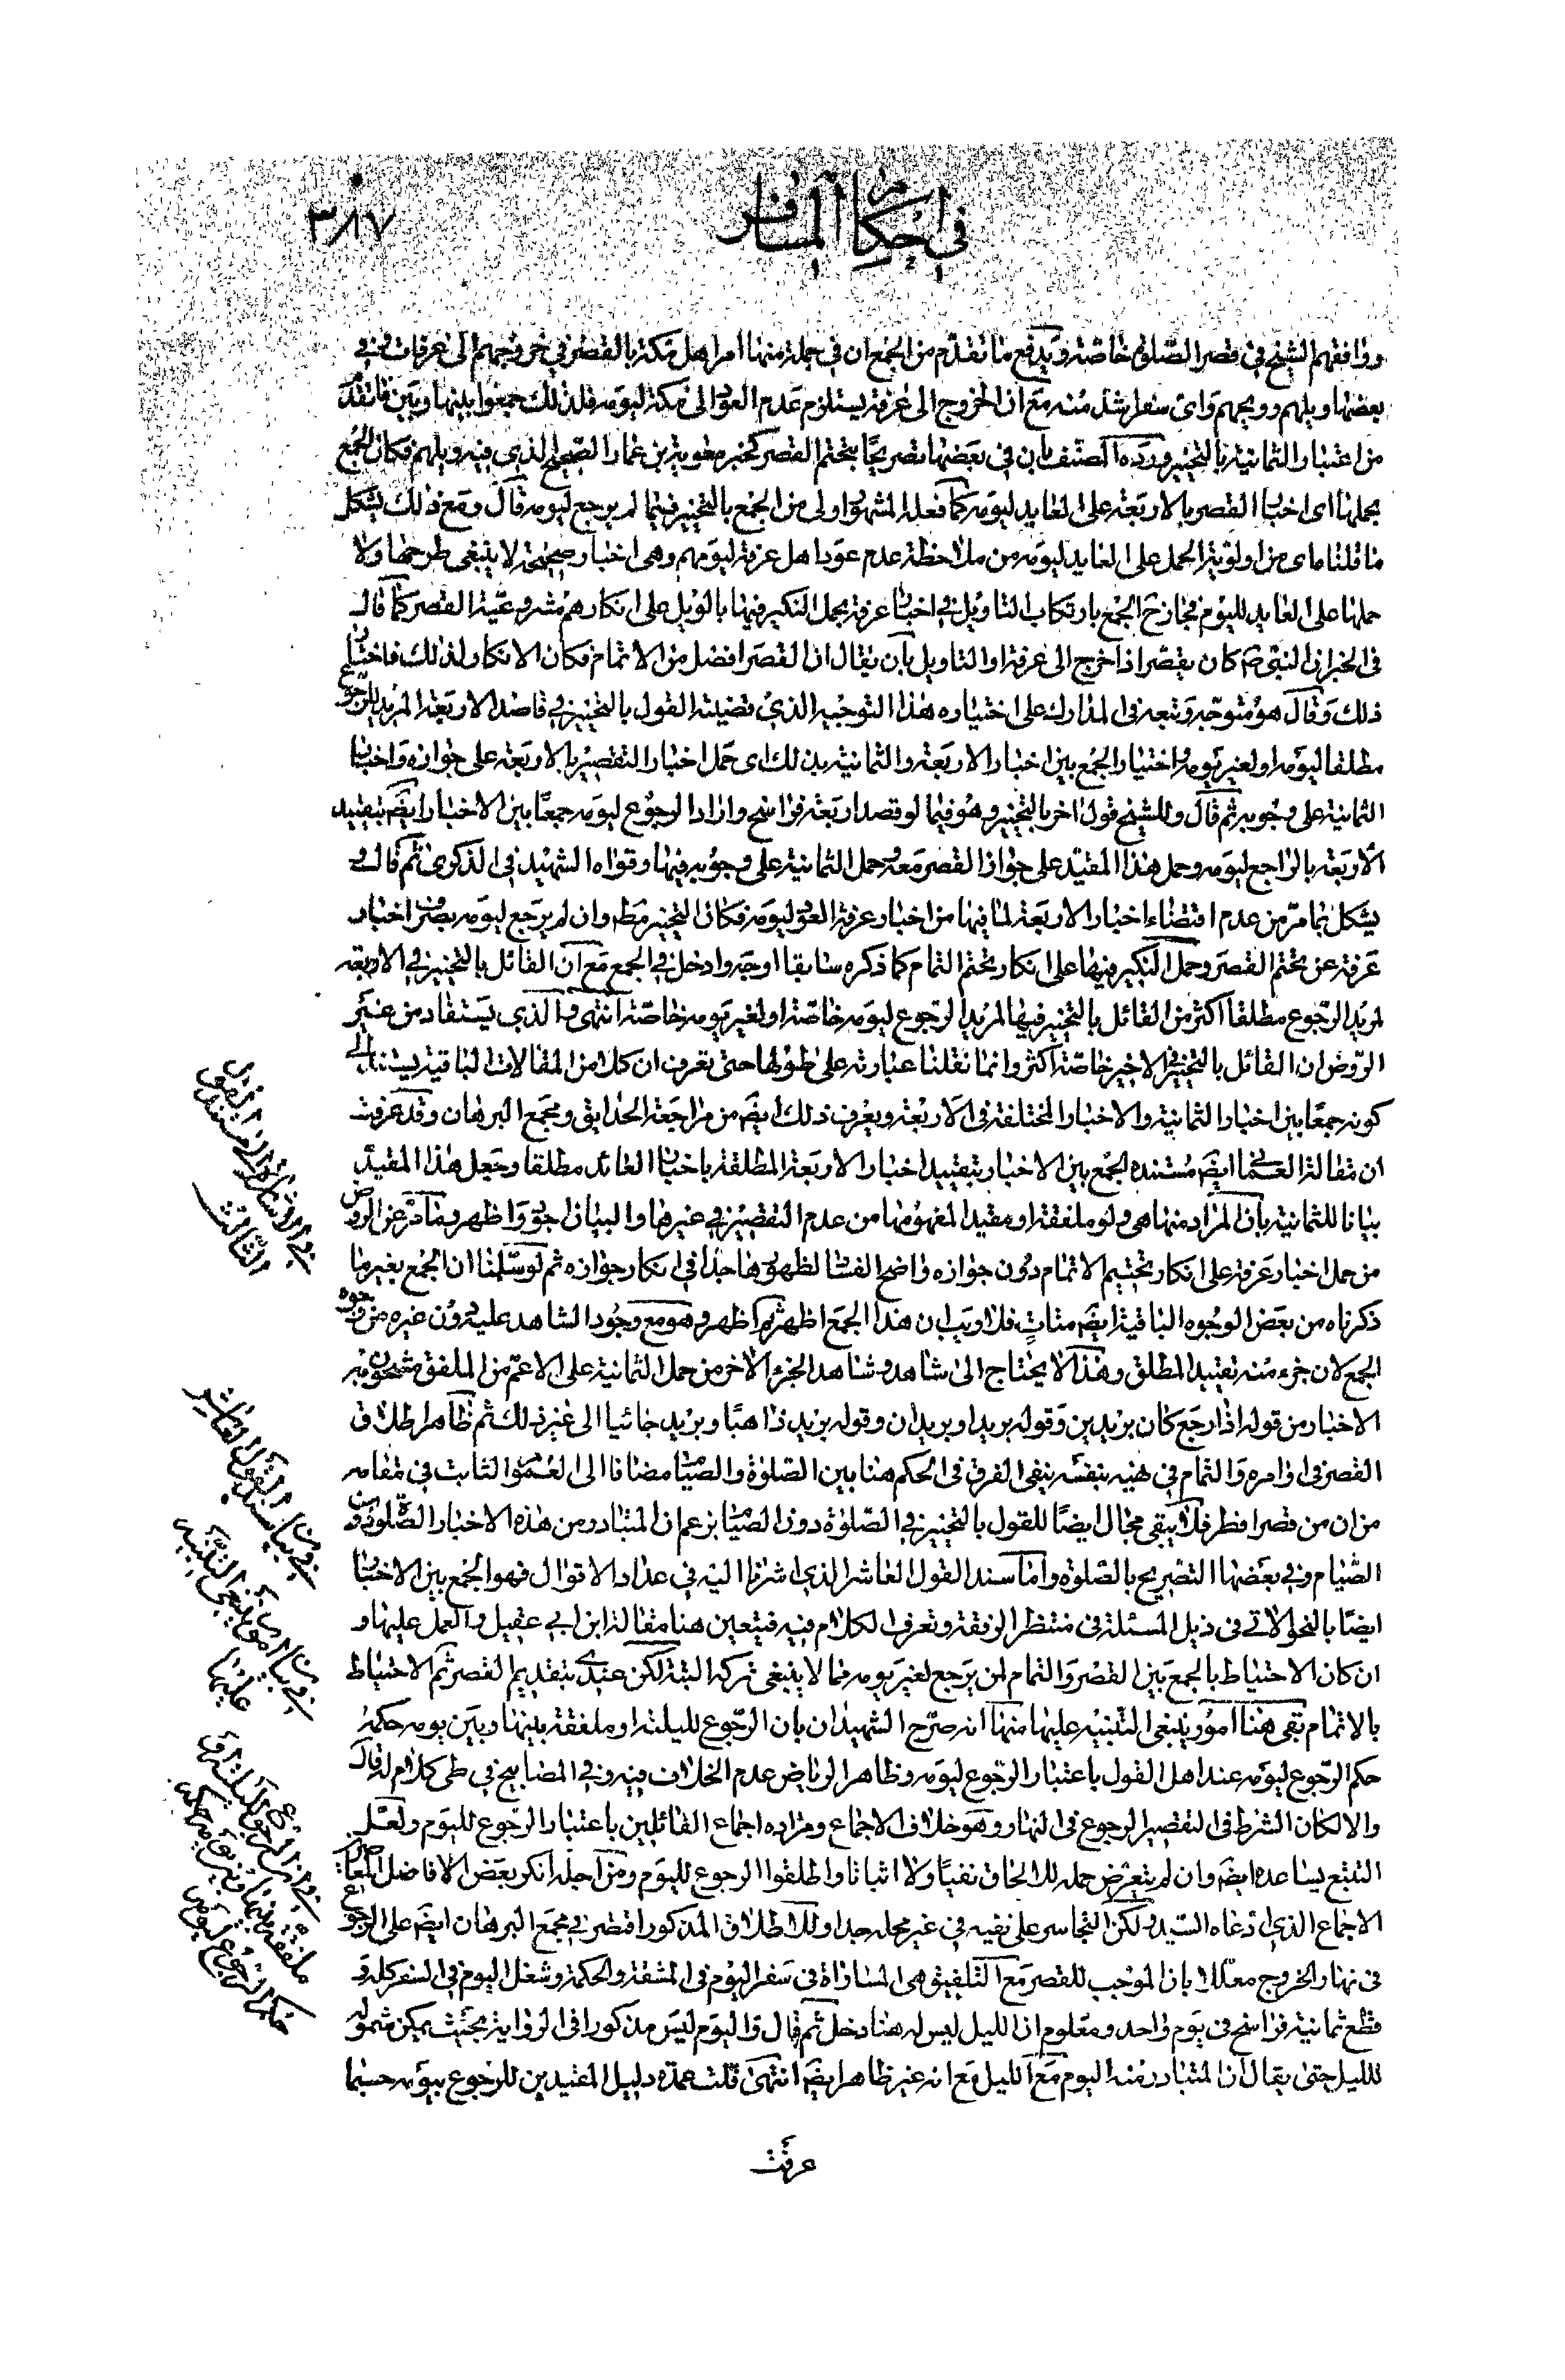 في احكام المسافر
٣٨٧
ووافقهم الشيخ في قصر الصلوة خاصة ويدفع ما تقدم من الجمع ان في جملة منها امر اهل مكة بالقصر في خروجهم الى عرفات وفي
بعضها ويلهم وويحهم واى سفر اشد منه مع ان الخروج الى عرفة يستلزم عدم العود الى مكة ليومه فلذلك جمعوا بينها وبين ما تقدم
من اعتبار الثمانية بالتخيير ورده المصنف بان في بعضها تصريحا بتحتم القصر كخبر معوية بن عمار الصحيح الذي فيه ويلهم فكان الجمع
بحملها اى اخبار القصر بالاربعة على العايد ليومه كما فعله المشهور اولى من الجمع بالتخيير فيما لم يرجع ليومه قال ومع ذلك يشكل
ما قلناه من اولوية الحمل على العايد ليومه من ملاحظة عدم عود اهل عرفة ليومهم وهى اخبار صحيحة لا ينبغي طرحها ولا
حملها على العايد لليوم فخارج الجمع بارتكاب التاويل في اخبار عرفة بحمل النكير فيها بالويل على انكارهم مشروعية القصر كما قال
في الخبر ان النبي ص كان يقصر اذا خرج الى عرفة او التاويل بان يقال ان القصر افضل من الاتمام فكان الانكار لذلك فاختار
ذلك وقال هو متوجه وتبعه في المدارك على اختياره هذا التوجيه الذي قضيته القول بالتخيير في قاصد الاربعة المريد للرجوع
مطلقا ليومه او لغير يومه واختيار الجمع بين اخبار الاربعة والثمانية بذلك اى حمل اخبار التقصير بالاربعة على جوازه واخبار
الثمانية على وجوبه ثم قال وللشيخ قول اخر بالتخيير وهو فيما لو قصد اربعة فراسخ واراد الرجوع ليومه جمعا بين الاخبار ايضا بتقييد
الاربعة بالراجع ليومه وحمل هذا المقيد على جواز القصر معه وحمل الثمانية على وجوبه فيها وقواه الشهيد في الذكرى ثم قال و
يشكل بما مر من عدم اقتضاء اخبار الاربعة لما فيها من اخبار عرفة العود ليومه فكان التخيير مط وان لم يرجع ليومه بصرف اخبار
عرفة عن تحتم القصر وحمل النكير فيها على انكار تحتم التمام كما ذكره سابقا اوجه وادخل في الجمع مع ان القائل بالتخيير في الاربعة
لمريد الرجوع مطلقا اكثر من القائل بالتخيير فيها لمريد الرجوع ليومه خاصة او لغير يومه خاصة انتهى والذي يستفاد من غير
الروض ان القائل بالتخيير في الاخير خاصة اكثر وانما نقلنا عبارته على طولها حتى تعرف ان كلا من المقالات الباقية يستند الى
كونه جمعا بين اخبار الثمانية والاخبار المختلفة في الاربعة ويعرف ذلك ايضا من مراجعة الحدايق ومجمع البرهان وقد عرفت
ان مقالة العماني ايضا مستنده الجمع بين الاخبار بتقييد اخبار الاربعة المطلقة باخبار العائد مطلقا وجعل هذا المقيد
بيانا للثمانية بان المراد منها هى ولو ملفقة او مقيدا لمفهومها من عدم التقصير في غيرها والبيان اجود واظهر وما مر عن الروض
من حمل اخبار عرفة على انكار تحتيم الاتمام دون جوازه واضح الفساد لظهورها جدا في انكار جوازه ثم لو سلمنا ان الجمع بغير ما
ذكرناه من بعض الوجوه الباقية ايضا متات فلا ريب ان هذا الجمع اظهر ثم اظهر وهو مع وجود الشاهد عليه دون غيره من وجوه
الجمع لان جزء منه تقييد المطلق وهذا لا يحتاج الى شاهد وشاهد الجزء الاخر من حمل الثمانية على الاعم من الملفق مشحون به
الاخبار من قوله اذا رجع كان بريدين وقوله بريد او بريدان وقوله بريد ذاهبا وبريد جائيا الى غير ذلك ثم ظاهر اطلاق
القصر في اوامره والتمام في نهيه بنفسه ينفى الفرق في الحكم هنا بين الصلوة والصيام مضافا الى العموم الثابت في مقامه
من ان من قصر افطر فلا يبقى مجال ايضا للقول بالتخيير في الصلوة دون الصيام بزعم ان المتبادر من هذه الاخبار الصلوة دون
الصيام وفي بعضها التصريح بالصلوة واما سند القول العاشر الذي اشرنا اليه في عداد الاقوال فهو الجمع بين الاخبار
ايضا بالنحو الاتى في ذيل المسئلة في منتظر الرفقة وتعرف الكلام فيه فيتعين هنا مقالة ابن ابي عقيل والعمل عليها و
ان كان الاحتياط بالجمع بين القصر والتمام لمن يرجع لغير يومه مما لا ينبغي تركه البتة لكن عندي بتقديم القصر ثم الاحتياط
بالاتمام بقى هنا امور ينبغي التنبيه عليها منها انه صرح الشهيدان بان الرجوع لليلته او ملفقة بينها وبين يومه حكمه
حكم الرجوع ليومه عند اهل القول باعتبار الرجوع ليومه وظاهر الرياض عدم الخلاف فيه وفي المصابيح في طى كلام له قال
والا لكان الشرط في التقصير الرجوع في النهار وهو خلاف الاجماع ومراده اجماع القائلين باعتبار الرجوع لليوم ولعل
التتبع يساعده ايضا وان لم يتعرض جملة للالحاق نفيا ولا اثباتا واطلقوا الرجوع لليوم ومن اجله انكر بعض الافاضل المعاصر
الاجماع الذي ادعاه السيد ولكن التجاسر على نفيه في غير محله جدا وللاطلاق المذكور اقتصر في مجمع البرهان ايضا على الرجوع
في نهار الخروج معللا بان الموجب للقصر مع التلفيق هى المساواة في سفر اليوم في المشقة والحكمة وشغل اليوم في السفر كله و
قطع ثمانية فراسخ في يوم واحد ومعلوم ان الليل ليس له هنا دخل ثم قال واليوم ليس مذكورا في الرواية بحيث يمكن شموله
لليل حتى يقال ان المتبادر منه اليوم مع الليل مع انه غير ظاهر ايضا انتهى قلت عمدة دليل المقيدين للرجوع بيومه حسبما
عرفت
في الاشارة الى مستند القول
الثالث
في بيان سند القول العاشر
في بيان امور ينبغي التنبيه
عليها
في ان الرجوع لليلته او
ملفقة بينها وبين يومه حكمه
حكم الرجوع ليومه